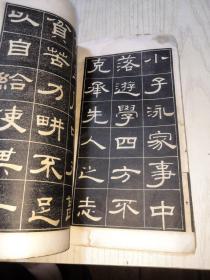 小子泳家事中
落遊學四方不
克承先人之志
貧苦力畊不足
以自給使其一